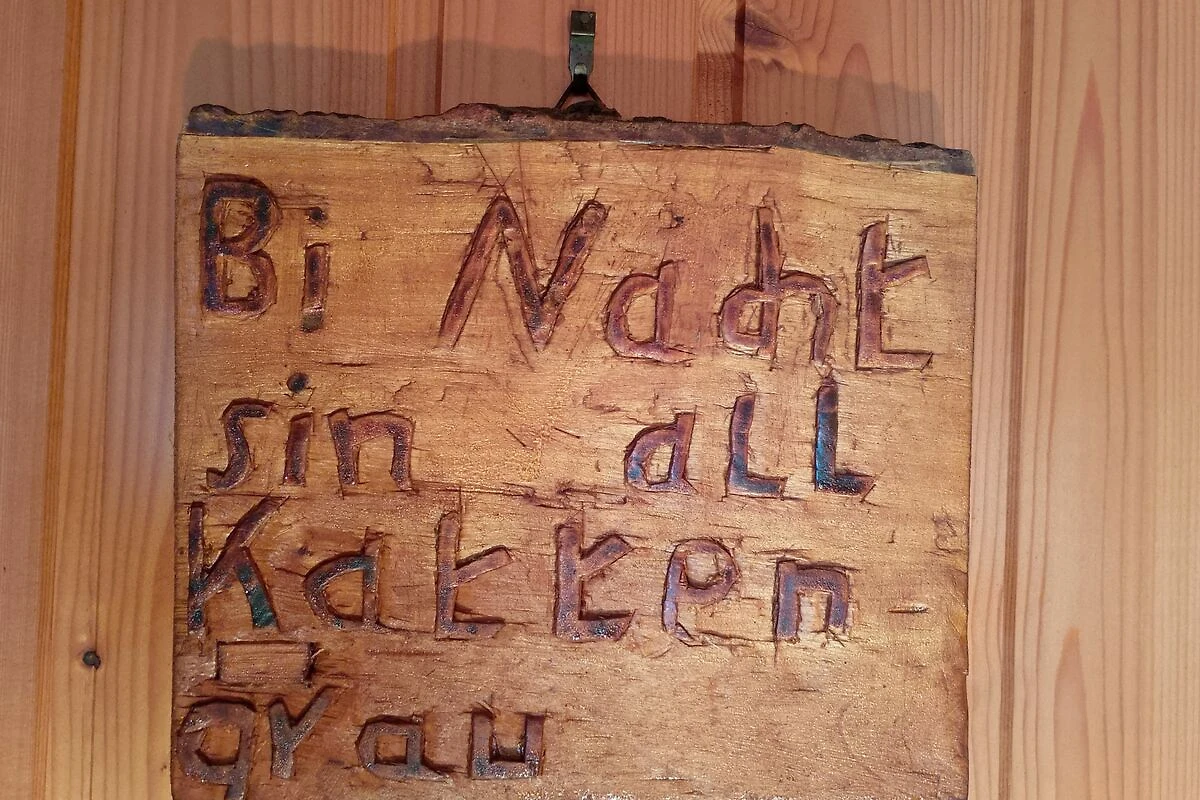 Bi Nacht
sin all
Katten
grau